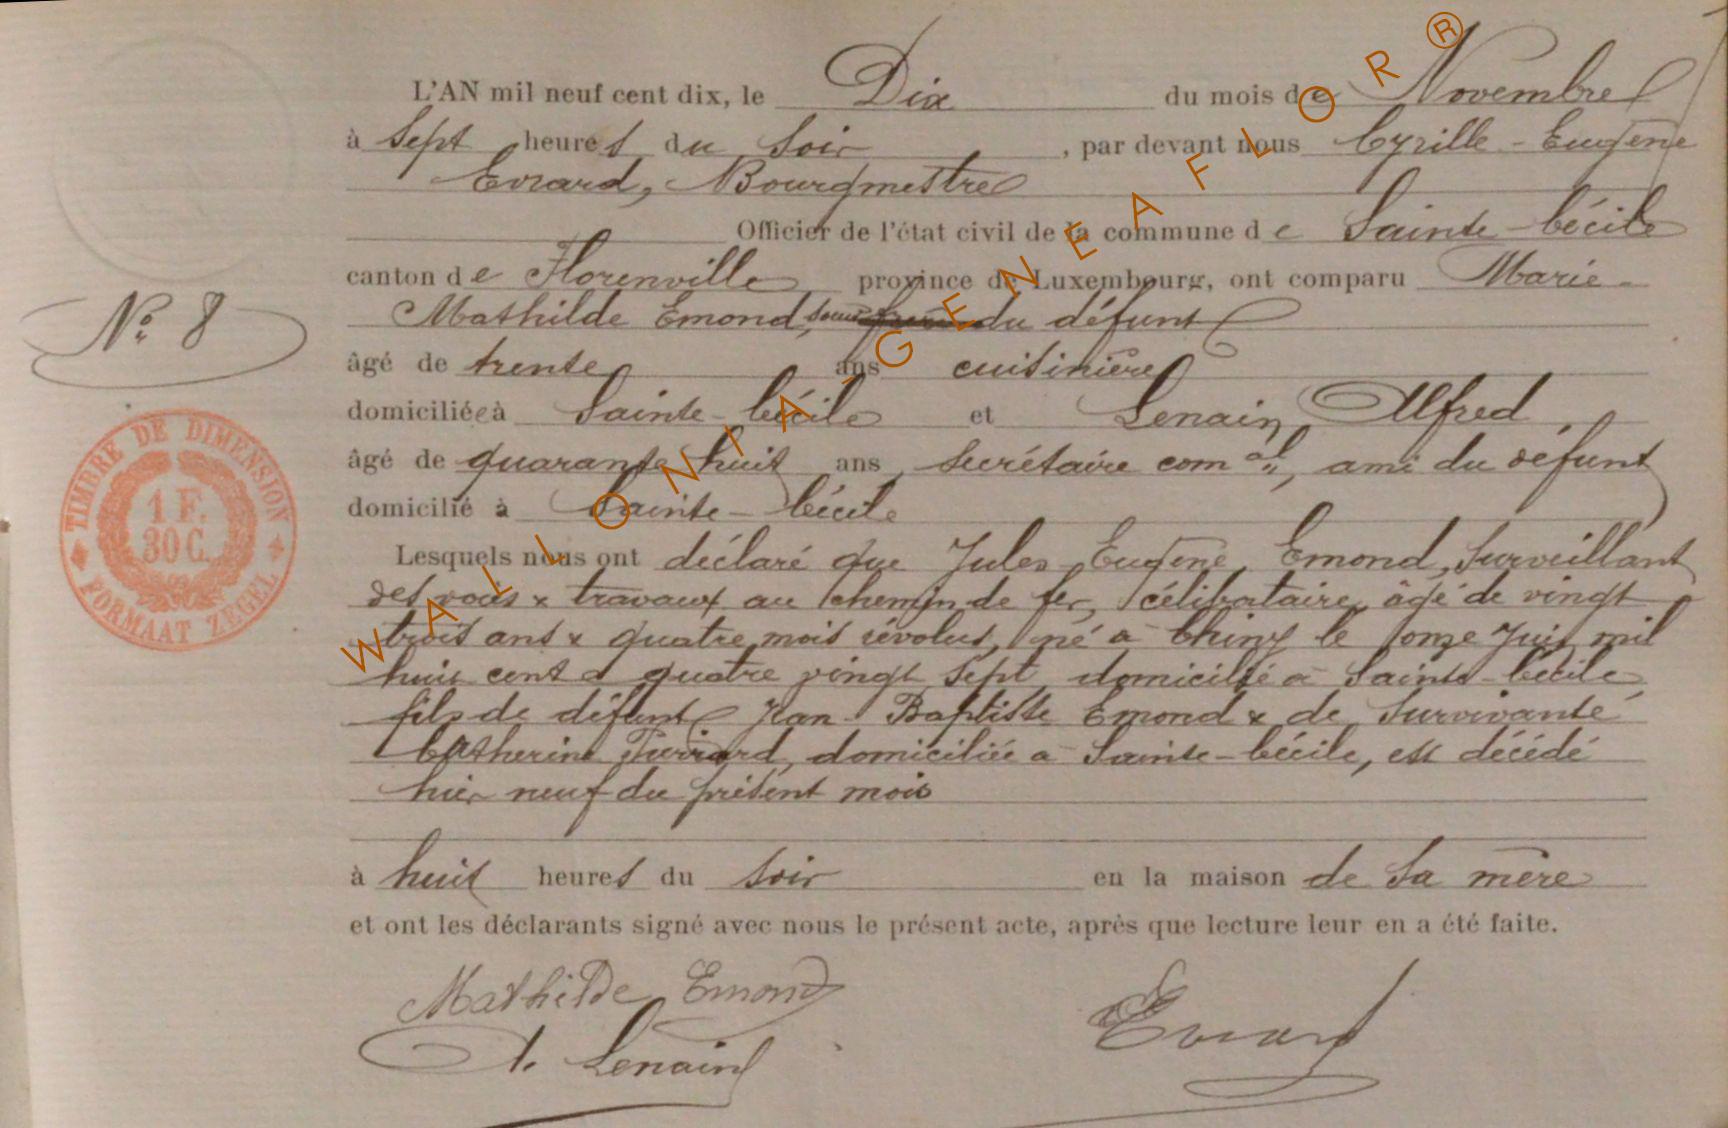 L'AN mil neuf cent dix, le Dix du mois de Novembre
à Sept heures du Soir , par devant nous Cyrille - Eugène
Evrard, Bourgmestre
Officier de l'état civil de la commune de Sainte-Cécile
canton de Florenville province de Luxembourg, ont comparu Marie-
Mathilde Emond, soeur du défunt
N° 8
âgé de trente ans cuisinière
domiciliée à Sainte-Cécile et Lenain Alfred
âgé de quarante huit ans, Secrétaire com al, ami du défunt
domicilié à Sainte-Cécile
Lesquels nous ont déclaré que Jules Eugène Emond, Surveillant
des voies & travaux au chemin de fer, célibataire, âgé de vingt
trois ans & quatre mois révolus, né à Chiny le onze Juin mil
huit cent quatre vingt sept, domicilié à Sainte-Cécile
fils de défunt Jean Baptiste Emond & de Survivante
Catherine domiciliée à Sainte-Cécile, est décédé
hier neuf du présent mois
à huit heures du soir en la maison de Sa mère
et ont les déclarants signé avec nous le présent acte, après que lecture leur en a été faite.
Mathilde Emond
A. Lenain
Evrard
TIMBRE DE DIMENSION
1 F.
30 C.
FORMAAT ZEGEL
WALLONIA-GENEAFLOR®